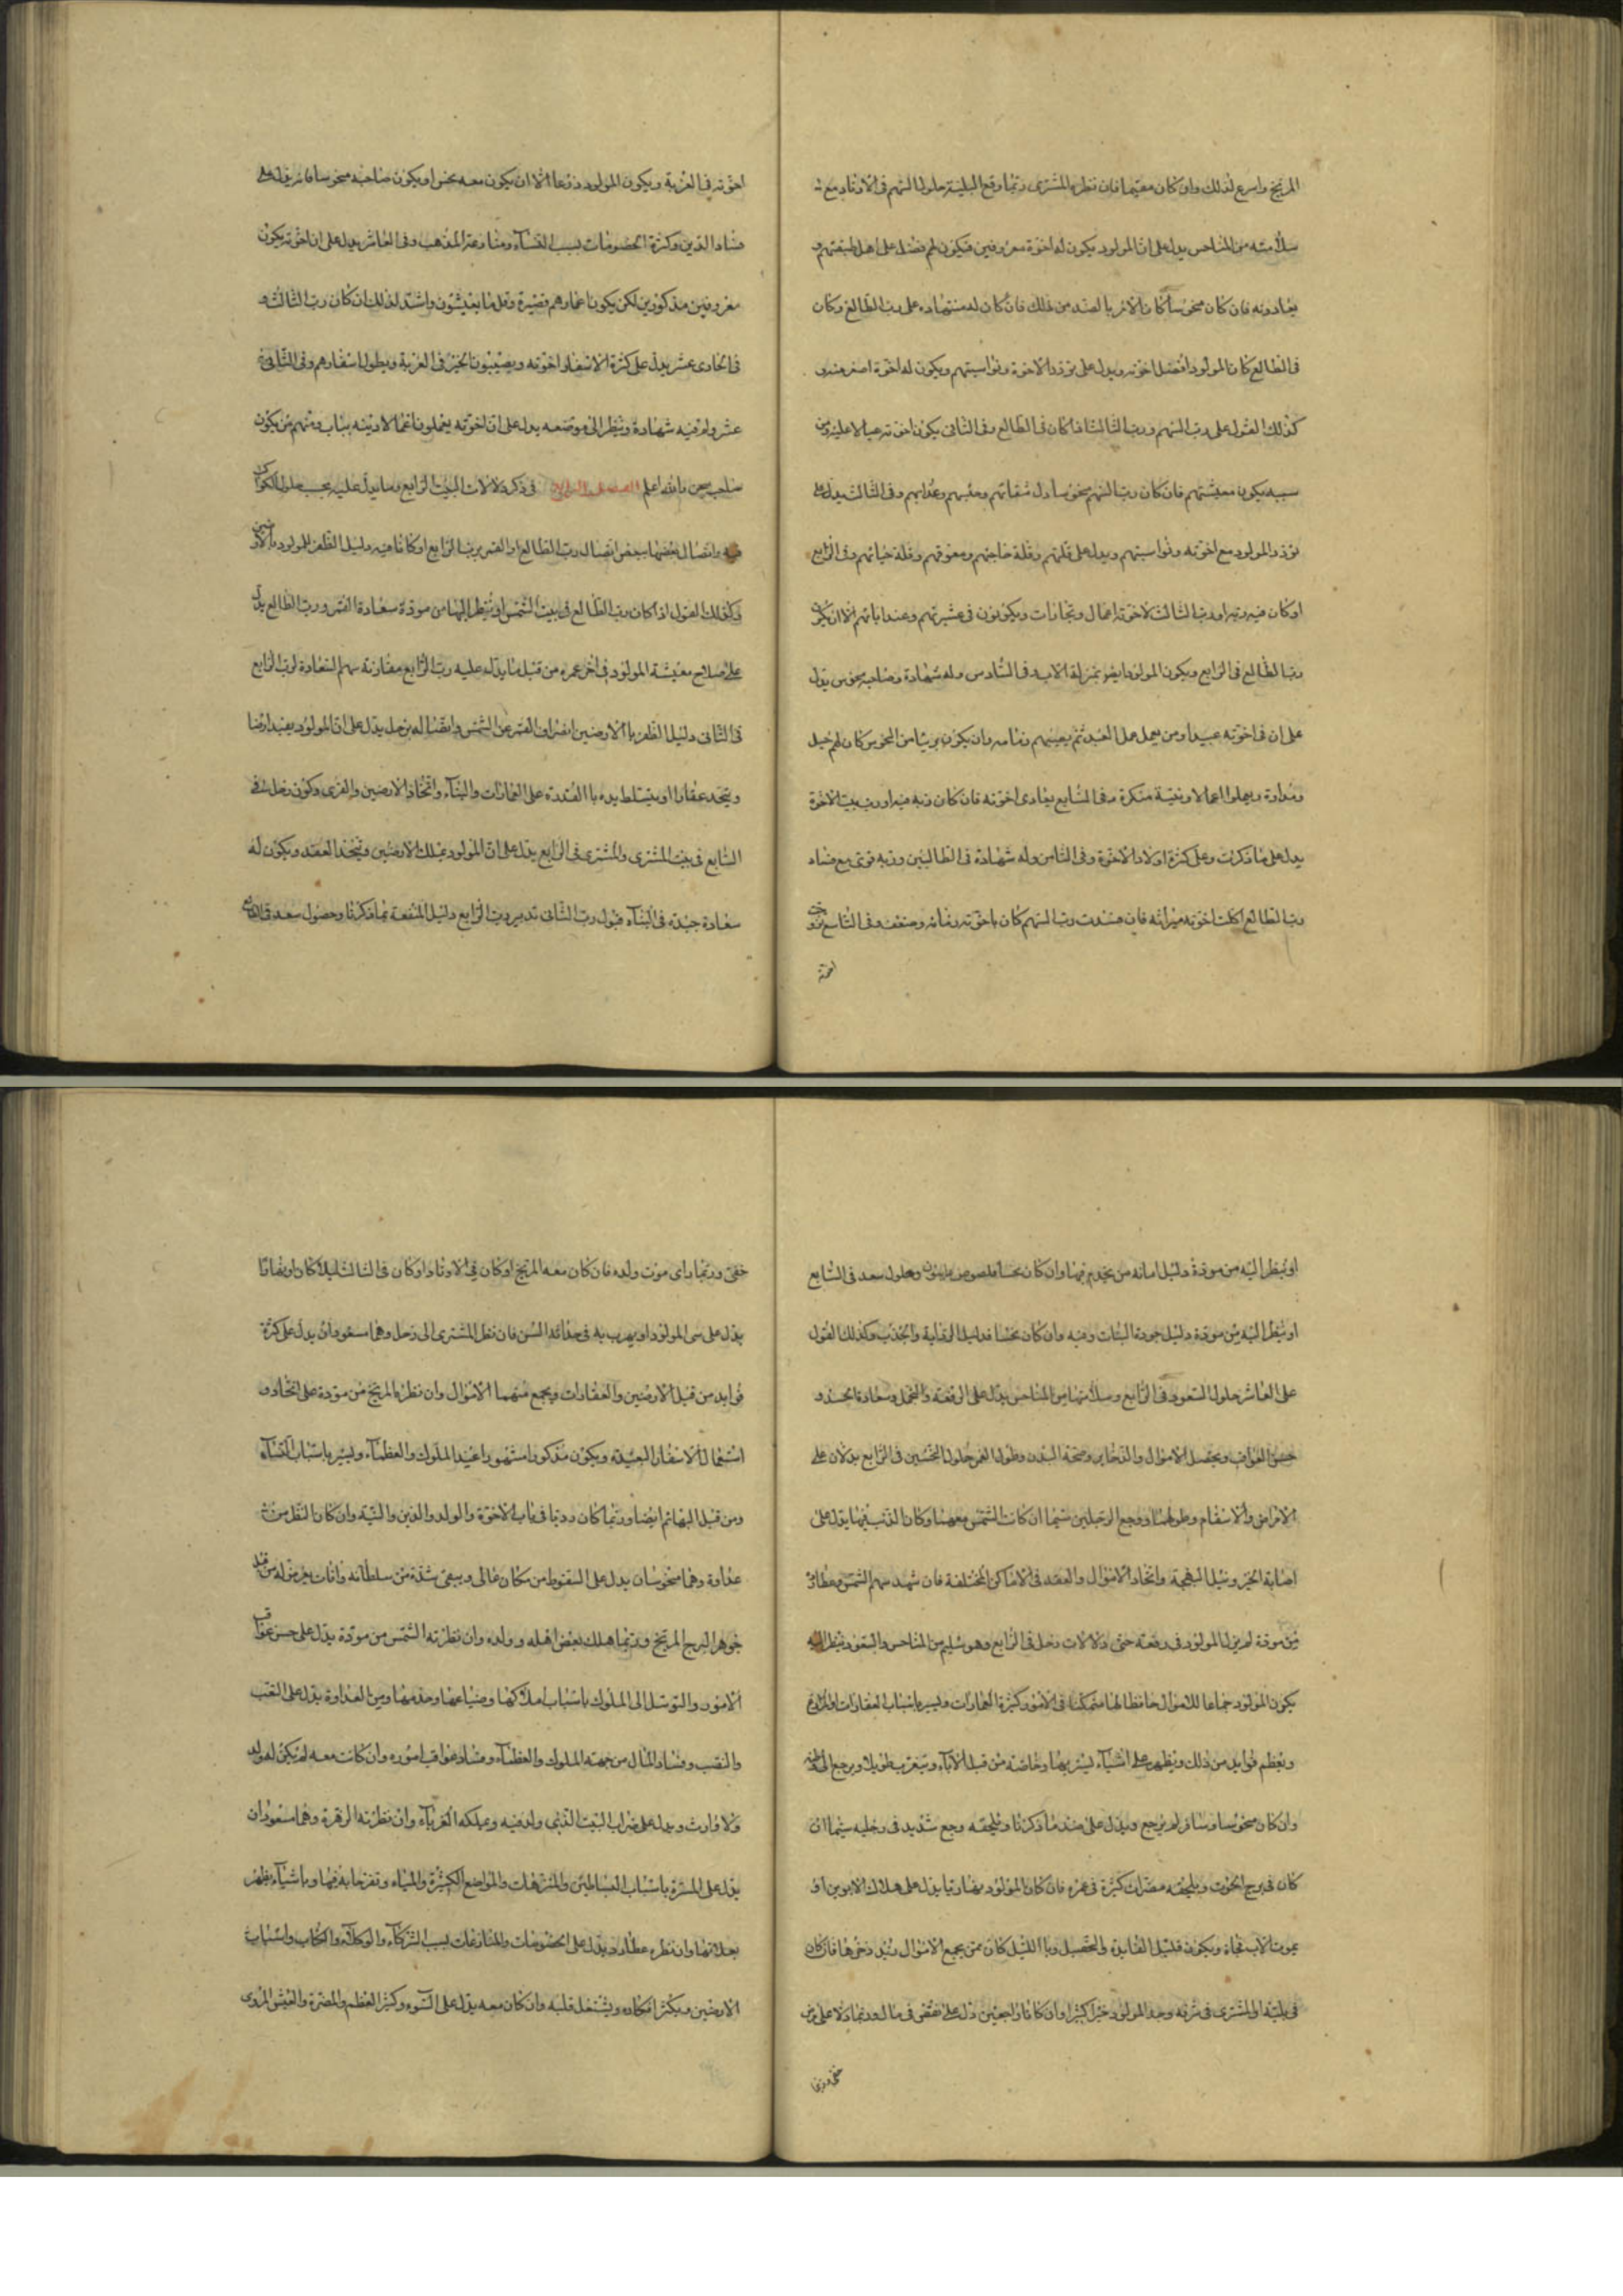 المريخ واسرع لذلك وان كان مقيما فان نظره المشترى وتمما وقع البلية حلول السهم فى الاوتاد مع
سلامته من المناحس يدل على ان المولود يكون له اخوة معروفين فيكون لهم فضل على اهل طبقتهم و
يعادونه فان كان منحوسا كان الامر بالضد من ذلك فان كان له شهاده على رب الطالع وكان
فى الطالع كان المولود افضل اخوته ويدل على تودد الاخوة وتواسيهم ويكون له اخوة اصغر منه
كذلك القول على رب السهم ورب الثالث اذا كان فى الطالع وفى الثانى يكون اخوته عيالا عليه ومن
سببه يكون معيشتهم فان كان رب السهم منحوسا دل شقائهم وحبسهم وعذابهم وفى الثالث يدل على
تودد المولود مع اخوته وتواسيهم ويدل على قلتهم وقلة حاجتهم ومعونتهم وقلة حياتهم وفى الرابع
او كان فيه ربه او رب الثالث لاخوته اعمال وتجارات ويكونون فى عشيرتهم وعند ابائهم الا ان يكون
رب الطالع فى الرابع ويكون المولود ايضا بمنزلة الاب وفى السادس وله شهادة وصاحبه منحوس يدل
على ان فى اخوته عبيدا ومن يعمل عمل العبيد ثم يعينهم وان يكون بريئا من النحوس كان لهم خيل
ومداواة ويعملوا اعمالا ونفسة منكرة وفى السابع يعادى اخوته فان كان ربه فيه او رب بيت الاخوة
يدل على ما ذكرت وعلى كثرة اولاد الاخوة وفى الثامن وله شهادة فى الطالعين وربه قوى مع فساد
رب الطالع اكلت اخوته ميراثه فان فسدت رب السهم كان باخوته زمانه وضعف وفى التاسع تزوج
اخوته
اخوته فى الغربة ويكون المولود ورعا الا ان يكون معه نحس او يكون صاحبه منحوسا فانه يدل على
فساد الدين وكثرة الخصومات لسبب النساء ومنازعة المذهب وفى العاشر يدل على ان اخوته يكون
معروفين مذكورين لكن يكون اعمارهم قصيرة وقل ما يعيشون واشد لذلك ان كان رب الثالث و
فى الحادى عشر يدل على كثرة الاسفار اخوته ويصيبون الخير فى الغربة ويطول اسفارهم وفى الثانى
عشر وله فيه شهادة وينظر الى موضعه يدل على ان اخوته يعملون اعمالا دنيه ومنهم من يكون
صاحب سجن والله اعلم فى ذكر دلالات البيت الرابع وما يدل عليه بحسب حلول الكواكب
فيه واتصال بعضها ببعض اتصال رب الطالع او القمر برب الرابع او كانا فيه دليل الظفر للمولود بالارضين
وكذلك القول اذا كان رب الطالع فى بيت الشمس او ينظر اليها من مودة سعادة القمر ورب الطالع يدل
على صلاح معيشة المولود فى اخر عمره من قبل ما يدل عليه رب الرابع مقارنة سهم السعادة لرب الرابع
فى الثانى دليل الظفر بالارضين انصراف القمر عن الشمس واتصاله بزحل يدل على ان المولود يفيد ارضا
ويتخذ عقارا او يتسلط يده بالقدرة على العمارات والبناء واتخاذ الارضين والقرى وكون زحل فى
السابع فى بيت المشترى والمشترى فى الرابع يدل على ان المولود يملك الارضين ويتخذ العقد ويكون له
سعادة جيدة فى البناء قبول رب الثانى تدبير رب الرابع دليل المنفعة بما ذكرنا وحصول سعد فى الرابع
او ينظر اليه من مودة دليل امانة من يخدم فيها وان كان نحسا فلصوص وحلول سعد فى السابع
او ينظر اليه من مودة دليل جودة النبات وفيه وان كان نحسا فدليل الرداءة والجدب وكذلك القول
على العاشر حلول السعود فى الرابع وسلامتها من المناحس يدل على الرفعة والتجمل وسعادة الجد و
حسن العواقب وتحصيل الاموال والذخاير وصحة البدن وطول العمر حلول النحسين فى الرابع يدلان على
الامراض والاسقام وطولها ووجع الرجلين سيما ان كانت الشمس معهما وكان الذنب فيها يدل على
اصابة الخير ونيل البهجة واتخاذ الاموال والعقد فى الاماكن المختلفة فان شهد سهم الشمس وعطارد
من مودة لم يزل المولود فى رفعة حتى دلالات زحل فى الرابع وهو سليم من المناحس والسعود ينظر اليه
يكون المولود جماعا للاموال حافظا لها متمكنا فى الامور كثيرة العمارات وليسر باسباب العقارات والمزارع
وتعظم فوايد من ذلك ويظهر على اشياء ليسر بها وخاصة من قبل الاباء ويتغرب طويلا ويرجع الى وطنه
وان كان منحوسا وسافر لم يرجع ويدل على ضد ما ذكرنا ويلحقه وجع شديد فى رجليه سيما ان
كان فى برج الحوت ويلحقه مضرات كثيرة فى عمره فان كان المولود نهاريا يدل على هلاك الابوين او
يموت الاب فجاة ويكون قليل الفايدة والتحصيل وبالليل كان ممن يجمع الاموال بيد ذخرها فان كان
فى بيته او المشترى فى شرفه وجد المولود خيرا كثيرا وان كانا راجعين دل على نقص فى مال وربما دلا على مرض
خفى وربما
خفى وربما راى موت ولده فان كان معه المريخ او كان فى الاوتاد او كان فى الثالث ليلا كان او نهارا
يدل على سبى المولود او يهرب به فى حداثة السن فان نظر المشترى الى زحل وهما مسعودان يدل على كثرة
فوايد من قبل الارضين والعقارات ويجمع منهما الاموال وان نظره المريخ من مودة على اتخاذ و
استعمال الاسفار البعيدة ويكون مذكورا مشهورا عند الملوك والعظماء وليسر باسباب النساء
ومن قبل البهائم ايضا وربما كان رديا فى باب الاخوة والولد والدين والنية وان كان النظر من
عداوة وهما منحوسان يدل على السقوط من مكان عالى ويبقى شدة من سلطانه وافات يعرض له من قبل
جوهر البرج المريخ وربما هلك بعض اهله وولده وان نظرته الشمس من مودة يدل على حسن عواقب
الامور والتوسل الى الملوك باسباب املاكها وضياعها وخدمها ومن العداوة يدل على التعب
والنصب وفساد المال من جهة الملوك والعظماء وفساد عواقب اموره وان كانت معه لم يكن له ولد
ولا وارث ويدل على خراب البيت الذى ولد فيه ويملكه الغرباء وان نظرته الزهرة وهما مسعودان
يدل على المسرة باسباب البساطين والمنتزهات والمواضع الكثيرة والمياه وتفرحا به فيها وباشياء يظهر
بعلاتها وان نظره عطارد يدل على الخصومات والمنازعات لسبب الشركاء والوكلاء والكتاب واسباب
الارضين ويكثر افكاره ويشتغل قلبه وان كان معه يدل على السوء وكثر العظم والمضرة والعيش الردى